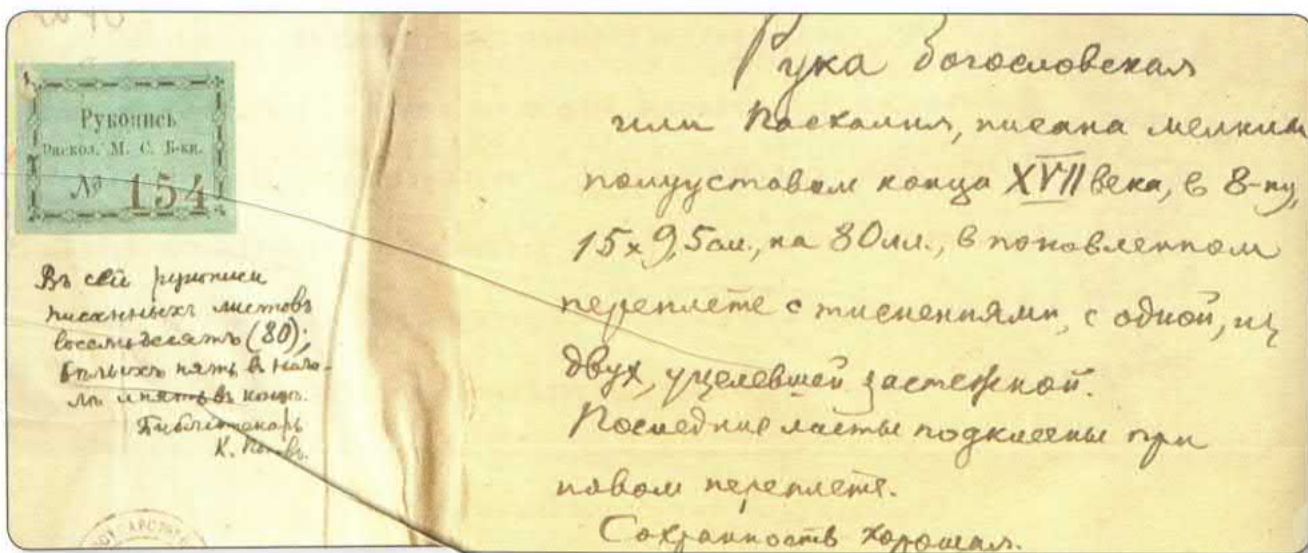 Рукопись
Раскол. М. С. Б-ки.
№ 154
Въ сей рукописи
писанныхъ листовъ
восемьдесятъ (80);
бѣлыхъ пять въ нача-
лѣ и пять въ концѣ.
Библіотекарь
К. Поповъ.
Рука Богословская
или Пасхалия, писана мелким
полууставом конца XVII века, в 8-ку,
15х9,5 см., на 80 лл., в поновленном
переплете с тиснениями, с одной, из
двух, уцелевшей застежкой.
Последние листы подклеены при
новом переплете.
Сохранность хорошая.